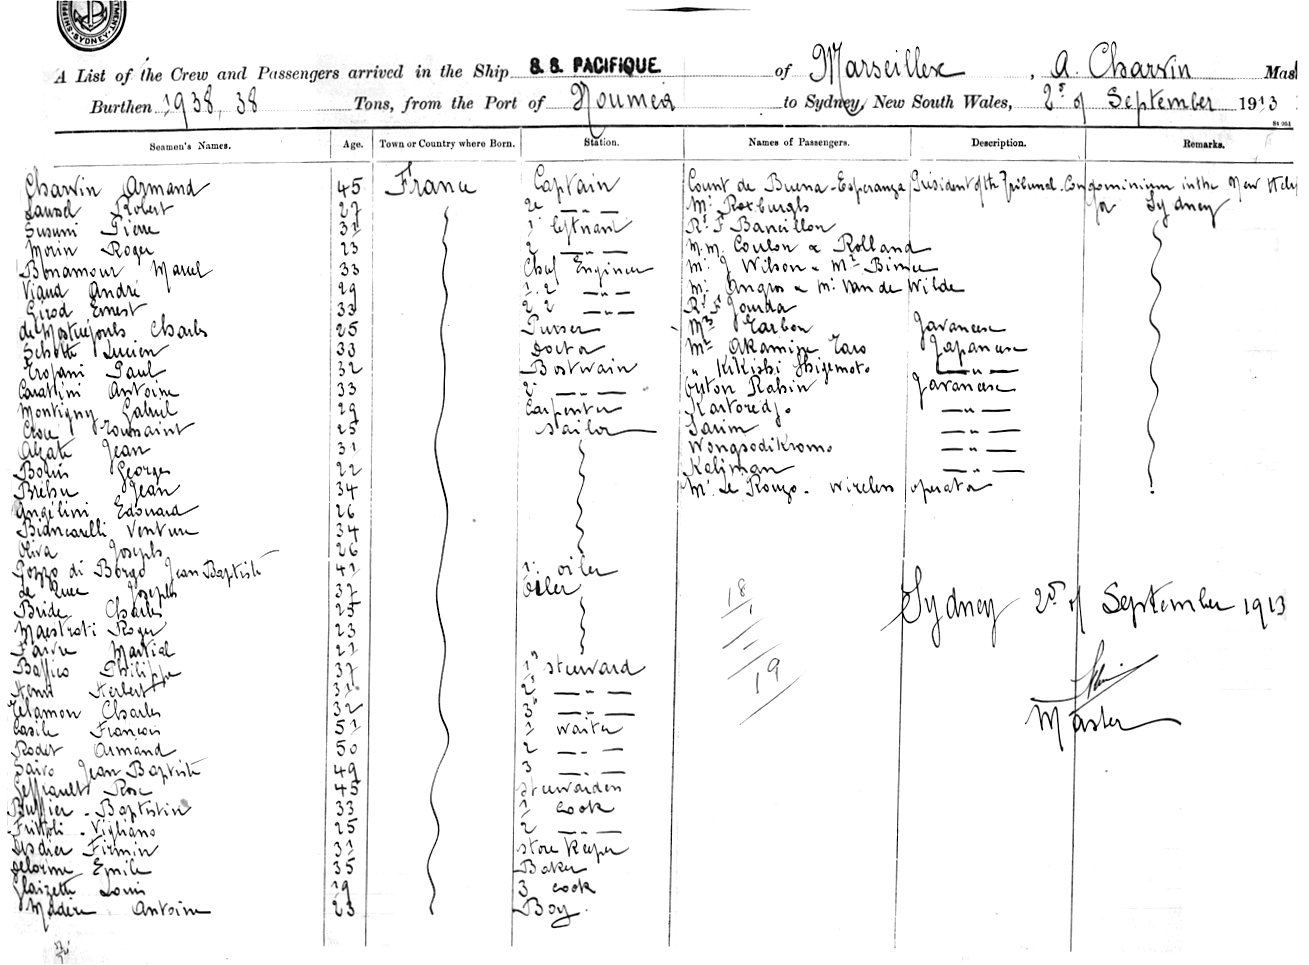 SYDNEY
A List of the Crew and Passengers arrived in the Ship S.S. PACIFIQUE of Marseilles, A. Charvin Mas
Burthen 1938,38 Tons, from the Port of Noumea to Sydney, New South Wales, 2d of September 1913
Seamen's Names. Age. Town or Country where Born. Station. Names of Passengers. Description. Remarks.
Charvin Armand 45 France Captain Count de Buena-Esperanza President of the Tribunal Condominium in the New Heb
Robert 27 2e —"— Mr Roxburgh for Sydney
Susini Pierre 31 1 Rd F Bancillon
Morin Roger 23 2 —"— M.M. Coulon & Rolland
Bonamour Marcel 33 Chef Engineer Mr J Wilson & Mr Birnie
Viaud André 29 1.2 —"— Mr Angro & Mr Van de Wilde
Girod Ernest 33 2.2 —"— Rd F Jourda
Charles 25 Purser Mrs Tarbon Javanese
Lucien 33 Doctor Mr Akamine Taro Japanese
Tropani Paul 32 Bostwain " Kikishi Shigemoto —"—
Carattini Antoine 33 2 —"— Rabin Javanese
Montigny Gabriel 29 Carpenter Kartoredjo —"—
Croce Toussaint 25 Sailor Sarim —"—
Agate Jean 31 Wongsodikromo —"—
Georges 22 Kaliman —"—
Jean 34 Mr Le Rouzo - Wireless operator
Angelini Edouard 26
Biancarelli Venture 34
Oliva Joseph 26
Pozzo di Borgo Jean Baptiste 41 1 oiler
de Luca Joseph 37 Oiler
Bride Charles 25
Maestrati Roger 23
Faivre Martial 21
Baffico Philippe 37 1r steward
Henri Herbert 31 2 —"—
Telamon Charles 32 3 —"—
Casile Francois 51 1 waiter
Rodet Armand 50 2 —"—
Jean Baptiste 49 3 —"—
Rose 45 stewarden
Buffier - Baptistin 33 1 cook
Frittoli - Vigliano 25 2 —"—
Firmin 31 store keeper
Delorme Emile 35 Baker
Louis 19 3 cook
Antoine 23 Boy.
18
1
19
Sydney 2d of September 1913
Master